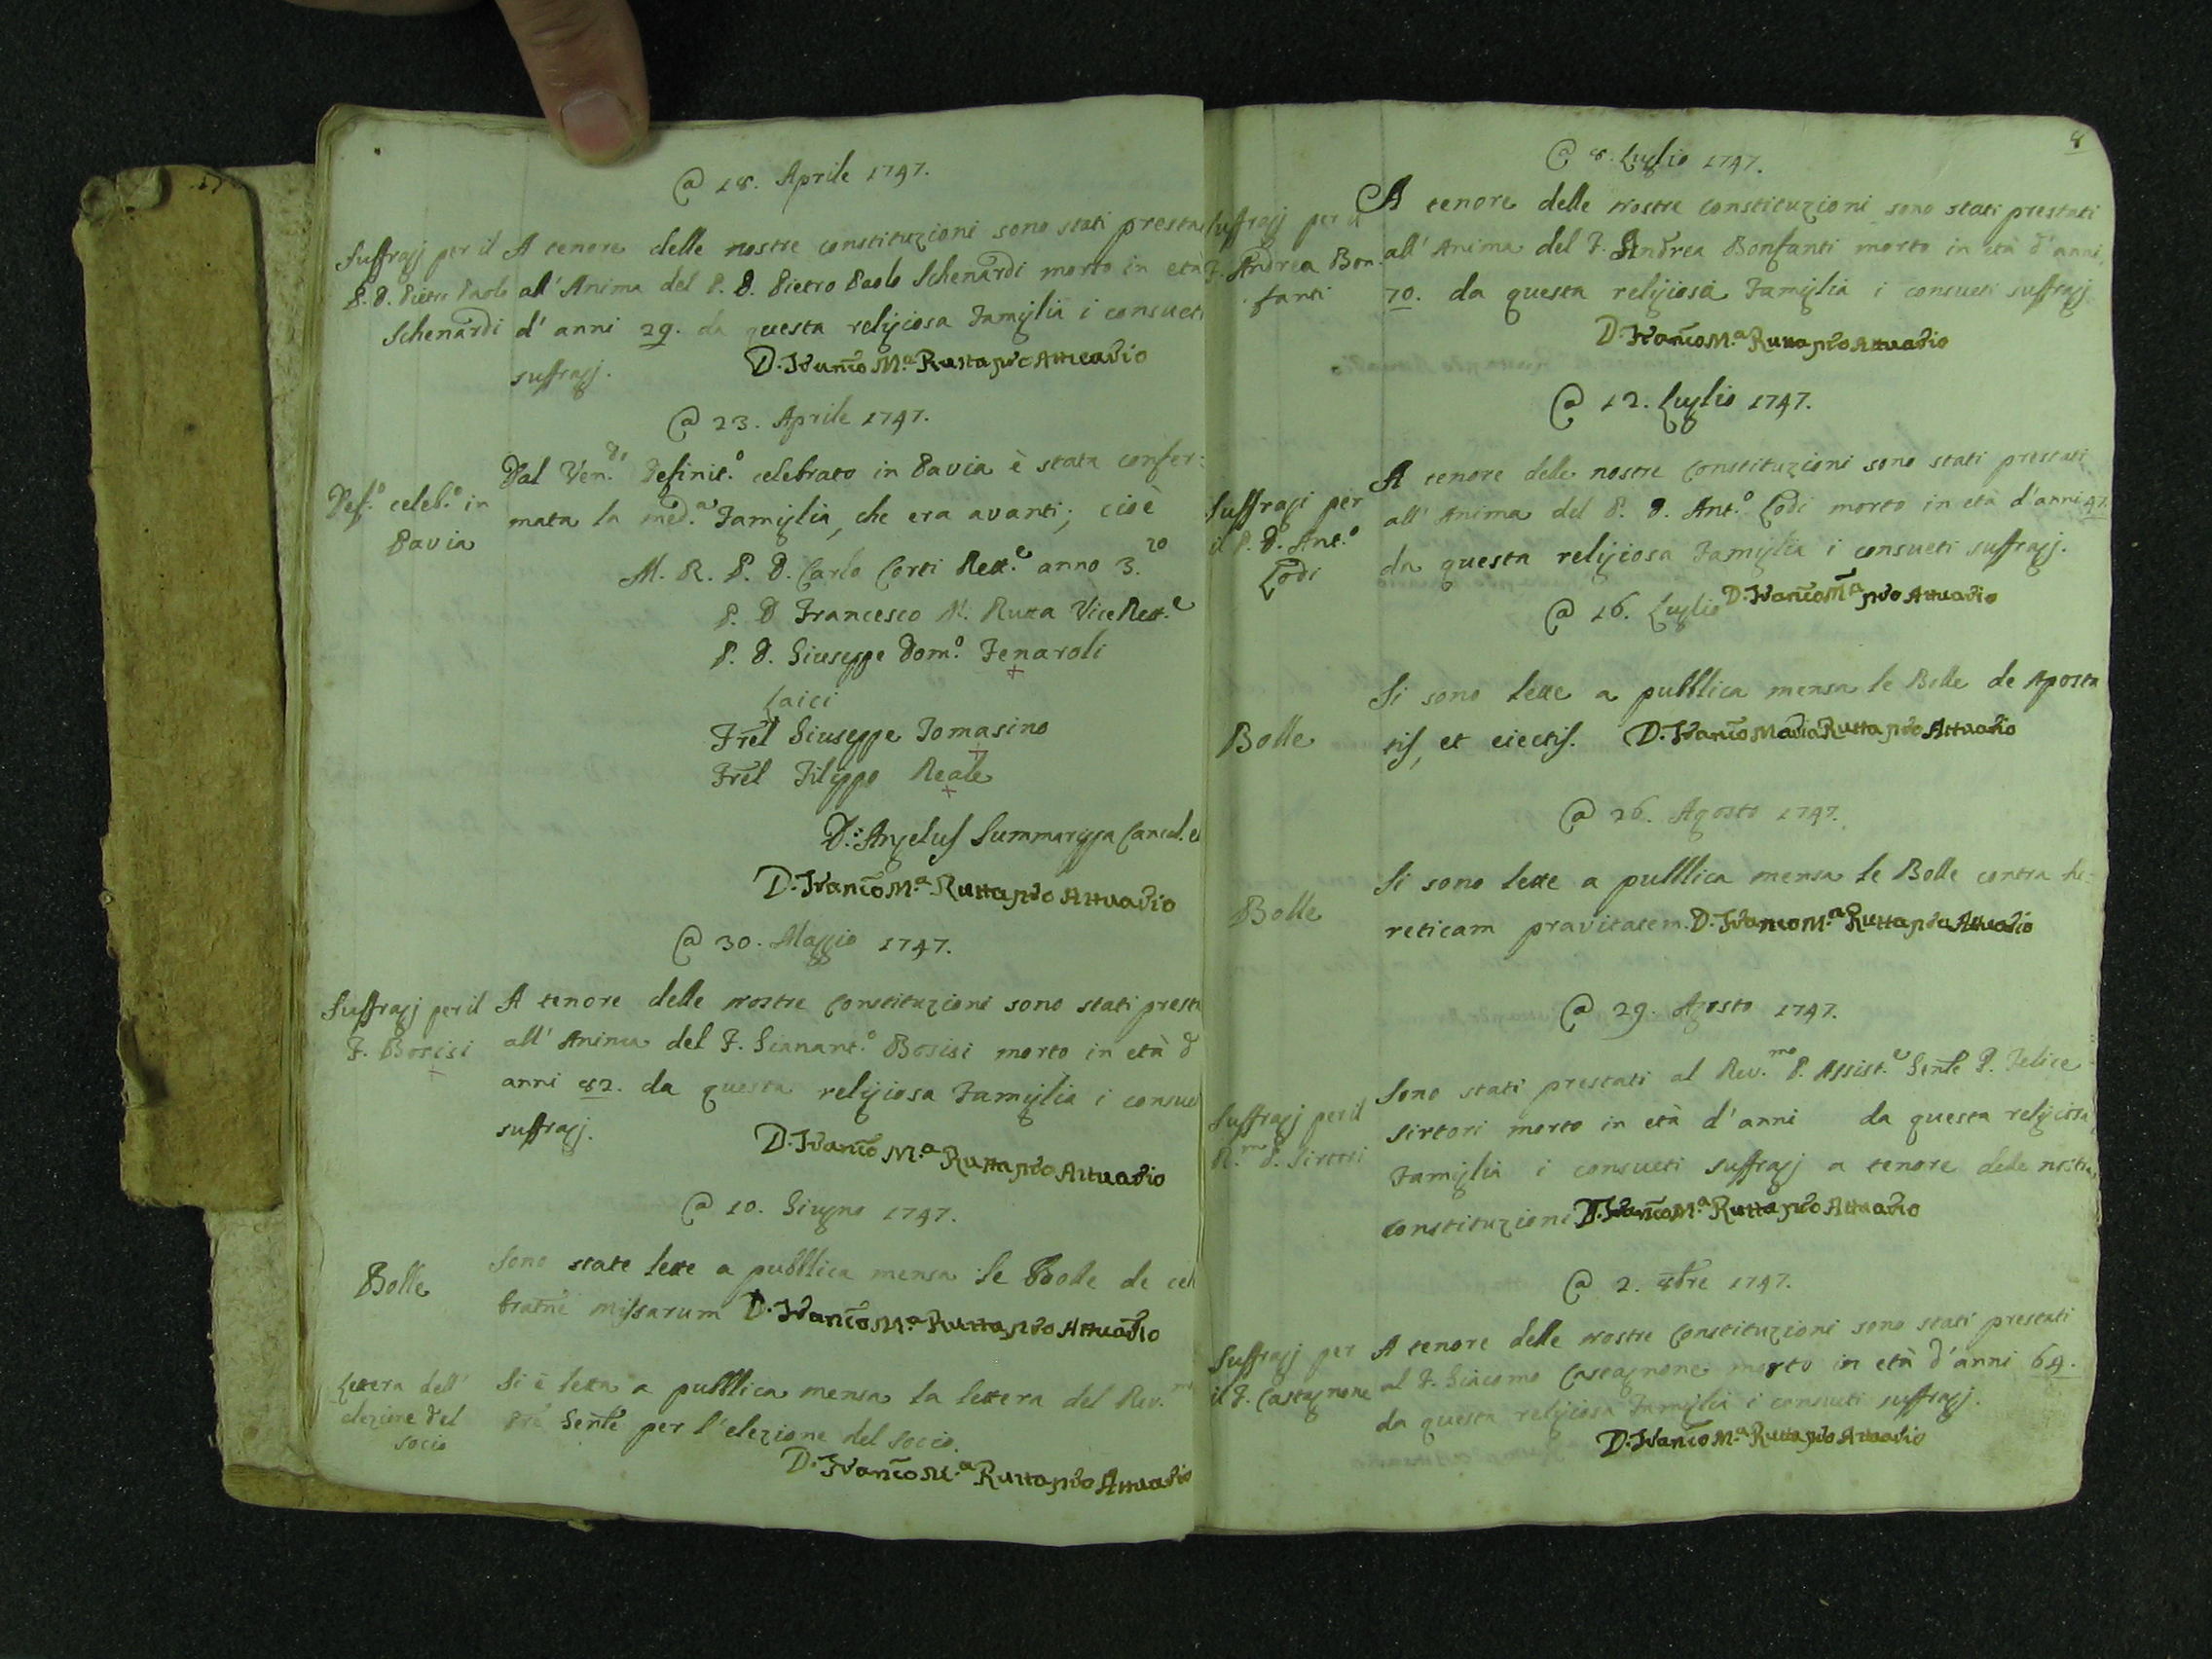 @ 18. Aprile 1747.
Suffragj per il
P. D. Pietro Paolo
Schenardi
A tenore delle nostre constituzioni sono stati presta
all' Anima del P. D. Pietro Paolo Schenardi morto in età
d' anni 29. da questa religiosa Famiglia i consueti
suffragj.
D. Franco M.a Rutta pro Attuario
@ 23. Aprile 1747.
Def.o celeb.o in
Pavia
Dal Ven.do Definit.o celebrato in Pavia è stata confer:
mata la med.a Famiglia, che era avanti; cioè
M. R. P. D. Carlo Corti Rett.e anno 3.zo
P. D Francesco M. Rutta ViceRett.e
P. D. Giuseppe Dom.o Fenaroli
Laici
Frel Giuseppe Tomasino
Frel Filippo Reale
D. Angelus Summarippa Cancel.
D. Franco M.a Rutta pro Attuario
@ 30. Maggio 1747.
Suffragj per il
F. Bosisi
A tenore delle nostre Constituzioni sono stati presta
all' Anima del F. Gianant.o Bosisi morto in età d
anni 82. da questa religiosa Famiglia i consue
suffragj.
D. Franco M.a Rutta pro Attuario
@ 10. Giugno 1747.
Bolle
Sono state lette a pubblica mensa le Bolle de cel
bratne missarum D. Franco M.a Rutta pro Attuario
Lettera dell'
elezione del
socio
Si è letta a pubblica mensa la lettera del Rev.mo
Pre Genle per l'elezione del socio.
D. Franco M.a Rutta pro Attuario
8
@ 8. Luglio 1747.
Suffragj per il
F. Andrea Bon-
fanti
A tenore delle nostre constituzioni sono stati prestati
all' Anima del F. Andrea Bonfanti morto in età d'anni
70. da questa religiosa Famiglia i consueti suffragj
D. Franco M.a Rutta pro Attuario
@ 12. Luglio 1747.
Suffragi per
il P. D. Ant.o
Lodi
A tenore delle nostre Constituzioni sono stati prestati
all' Anima del P. D. Ant.o Lodi morto in età d'anni 47.
da questa religiosa Famiglia i consueti suffragj.
D. Franco M.a pro Attuario
@ 16. Luglio
Bolle
Si sono lette a pubblica mensa le Bolle de Aposta
tis, et eiectis. D. Franco Maria Rutta pro Attuario
@ 26. Agosto 1747.
Bolle
Si sono lette a pubblica mensa le Bolle contra he-
reticam pravitatem. D. Franco M.a Rutta pro Attuario
@ 29. Agosto 1747.
Suffragj per il
R.mo P. Sirtori
Sono stati prestati al Rev.mo P. Assist.e Genle P. Felice
Sirtori morto in età d'anni da questa religiosa
Famiglia i consueti suffragj a tenore delle nostre
constituzioni D. Franco M.a Rutta pro Attuario
@ 2. 8bre 1747.
Suffragj per
il F. Castagnone
A tenore delle nostre Constituzioni sono stati prestati
al F. Giacomo Castagnone morto in età d'anni 64.
da questa religiosa Famiglia i consueti suffragj.
D. Franco M.a Rutta pro Attuario